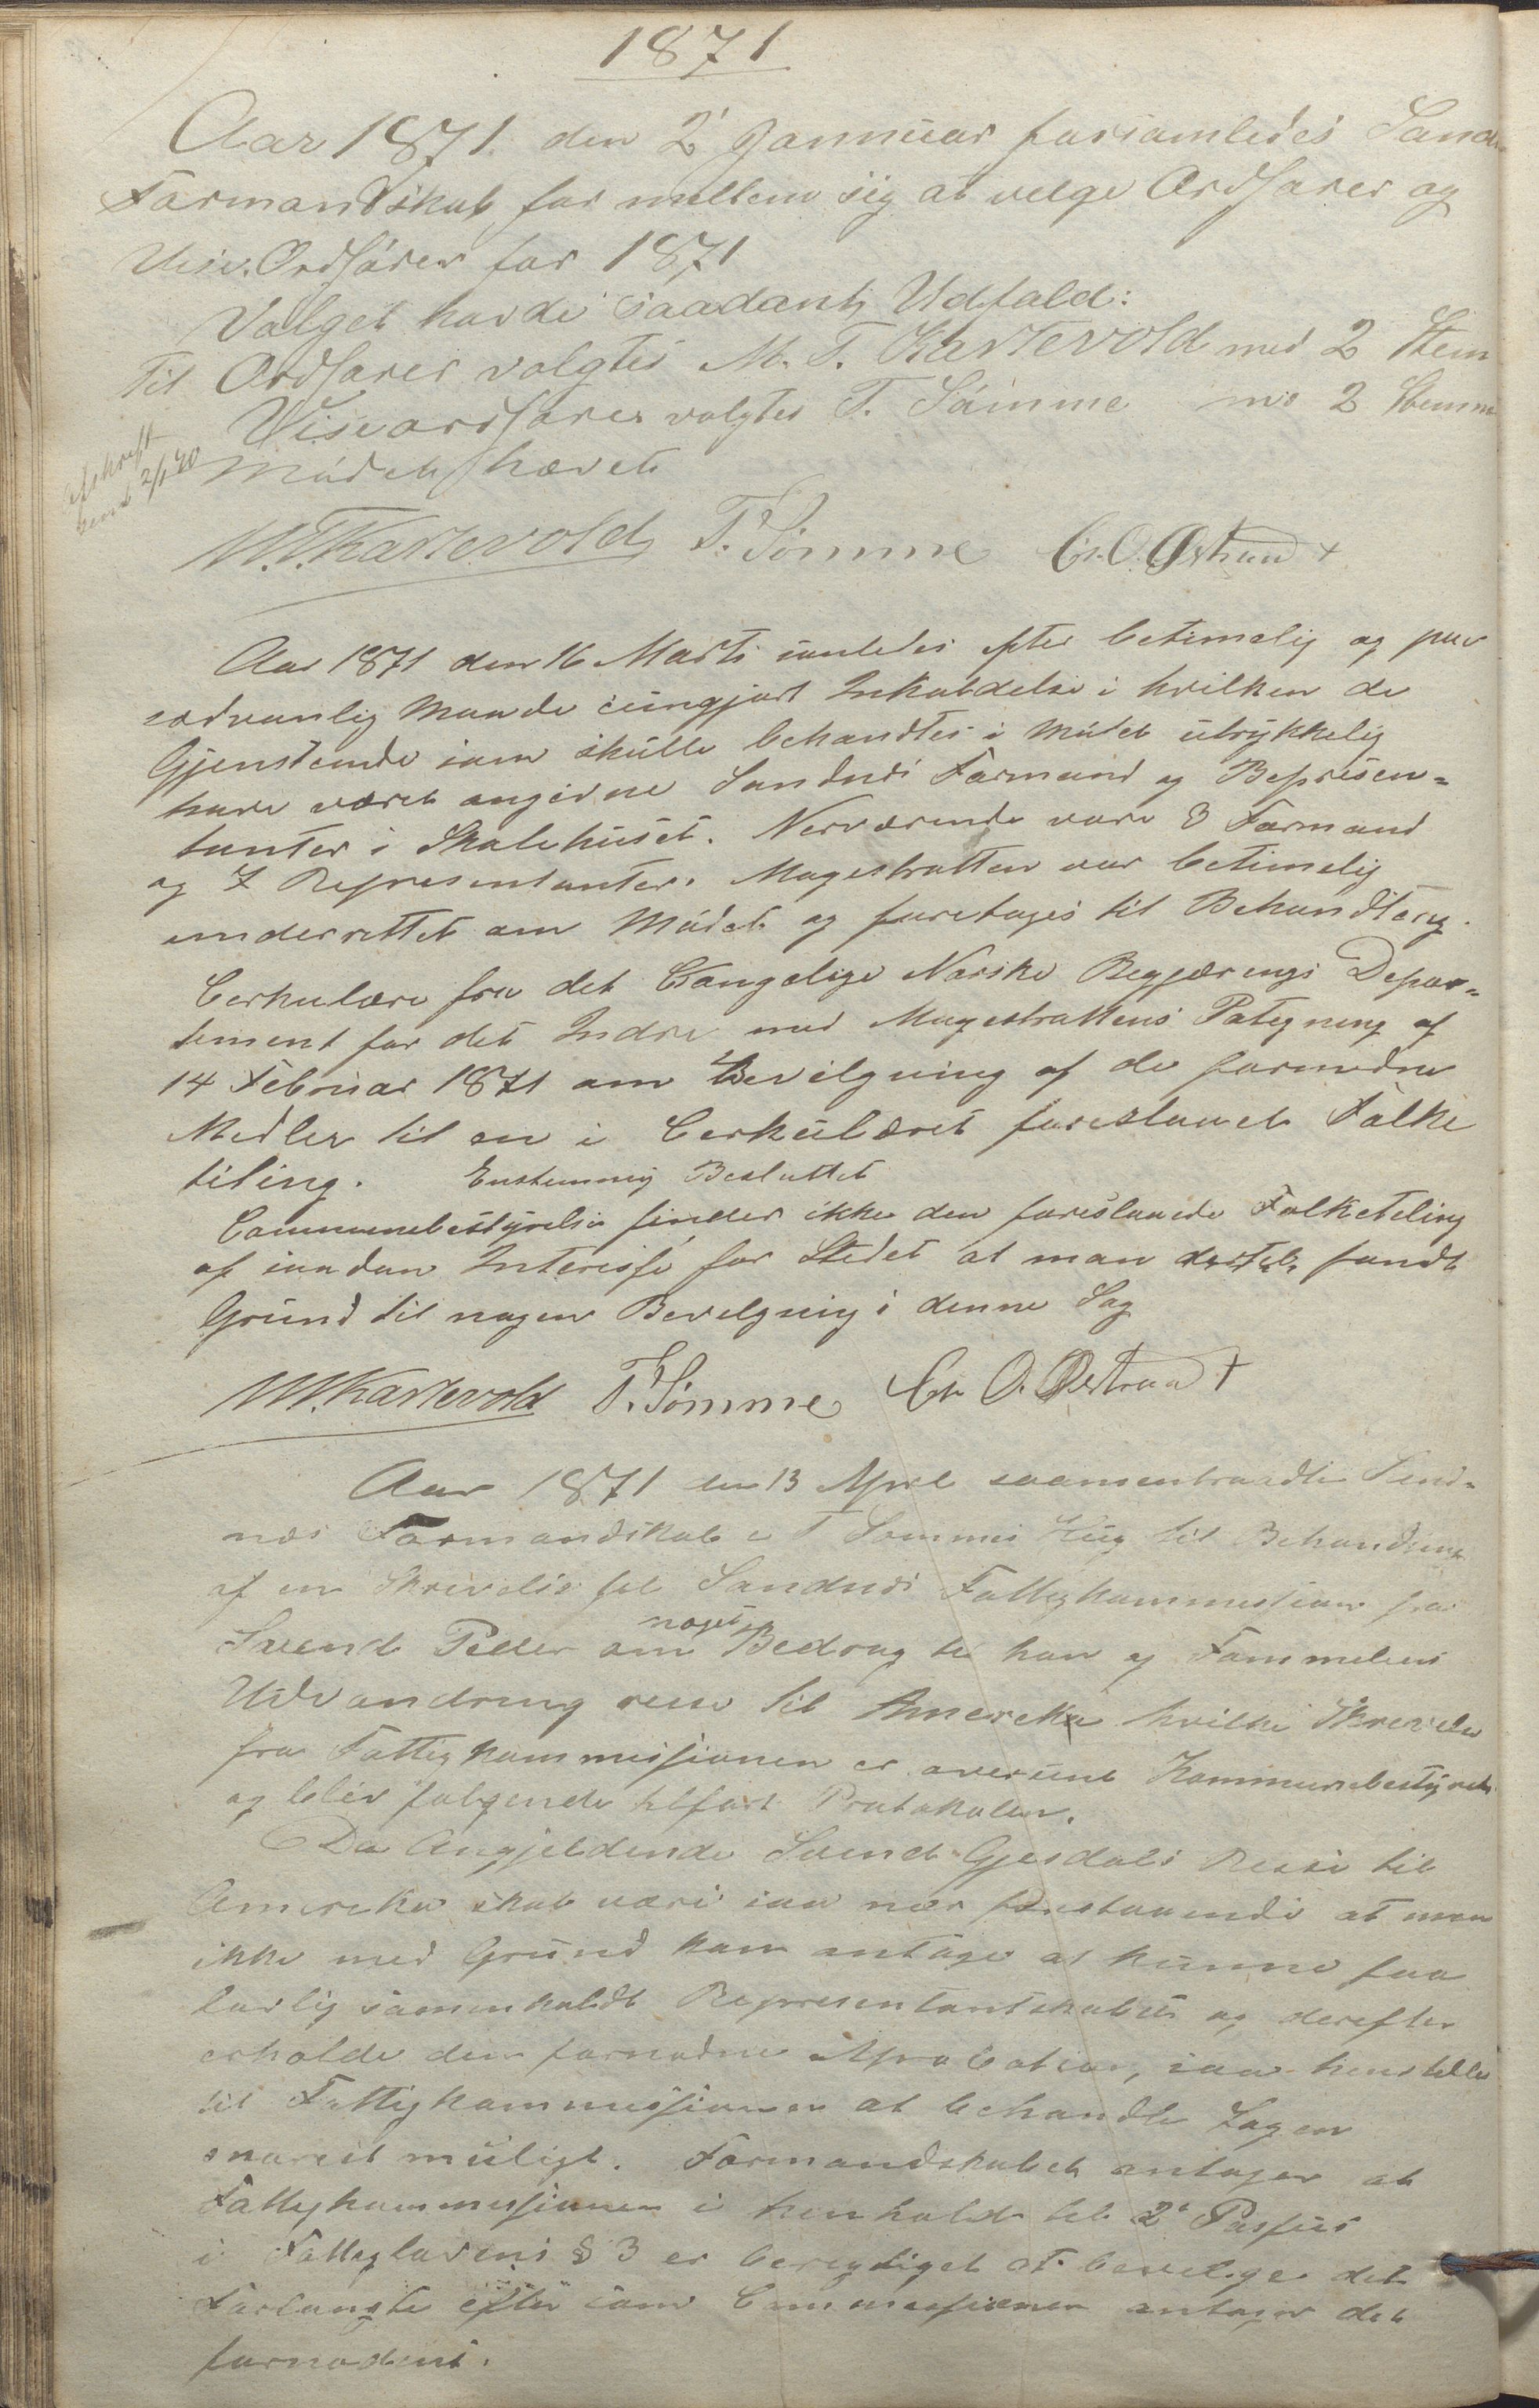 1871
Aar 1871 den 2' Januar forsamledes Sand
Formandskab for mellem sig at velge Ordforer og
Vise.Ordförer for 1871
Valget havde saadant Udfald:
Til Ordforer valgtes M. T. Kartevold med 2 Stem
Viseordforer valgtes T. Sömme md 2 Stemm
Mödet hævet
Afskrift
sendt 2/1 90
M.T.Kartevold T. Sömme Cr. O. Østraad +
Aar 1871 den 16 Marts samledes efter betimelig og paa
sedvanlig Maade cungjort Inkaldelse i hvilken de
Gjenstande som skulle behandles i Mödet utrykkelig
have været angivne Sandnæs Formænd og Represen=
tanter i Skolehuset. Nerværende vare 3 Formænd
og 7 Representanter. Magestratten var betimelig
underrettet om Mödet og foretoges til Behandling.
Cerkulære fra det Kongelige Norske Regjærings Depar=
tement for det Indre med Magestrattens Pategning af
14 Februar 1871 om Bevilgning af de fornødne
Medler til en i Cerkulæret foreslaaet Folke
teling. Enstemmig Besluttet
Communebestyrelse finder ikke den foreslaaede Folketeling
af saadan Interesse for Stedet at man dertil fandt
Grund til nogen Bevelgning i denne Sag
M.T.Kartevold T. Sömme Cr O. Østraad +
Aar 1871 den 13 April sammentraadte Sand=
næs Formandskab i T Sommes Hus til Behandling
af en Skrivelse til Sandnæs Fattigkommission fra
Svend Peder om noget Bedrag til han og Fammeliens
Udvandring reise til Amereka hvilke Skrivelse
fra Fattigkommissionen er oversent Kommunebestyrels
og blev følgende tilført Protokolen.
Da Angjeldende Svend Gjesdals Reise til
Amereka skal være saa nær forestaaende at man
ikke med Grund kan antage at kunne faa
lovlig samenkaldt Representantskabet og derefter
erholde den fornødne Aprobation, saa henstilles
til Fattigkommissionen at behandle Sagen
snarest muligt. Formandskabet antager at
Fattigkommissionen i henhold til 2' Passus
i Fatteglovens § 3 er beregtiget at bevelge det
Forlangte efter som Commissionen antager det
fornødent.